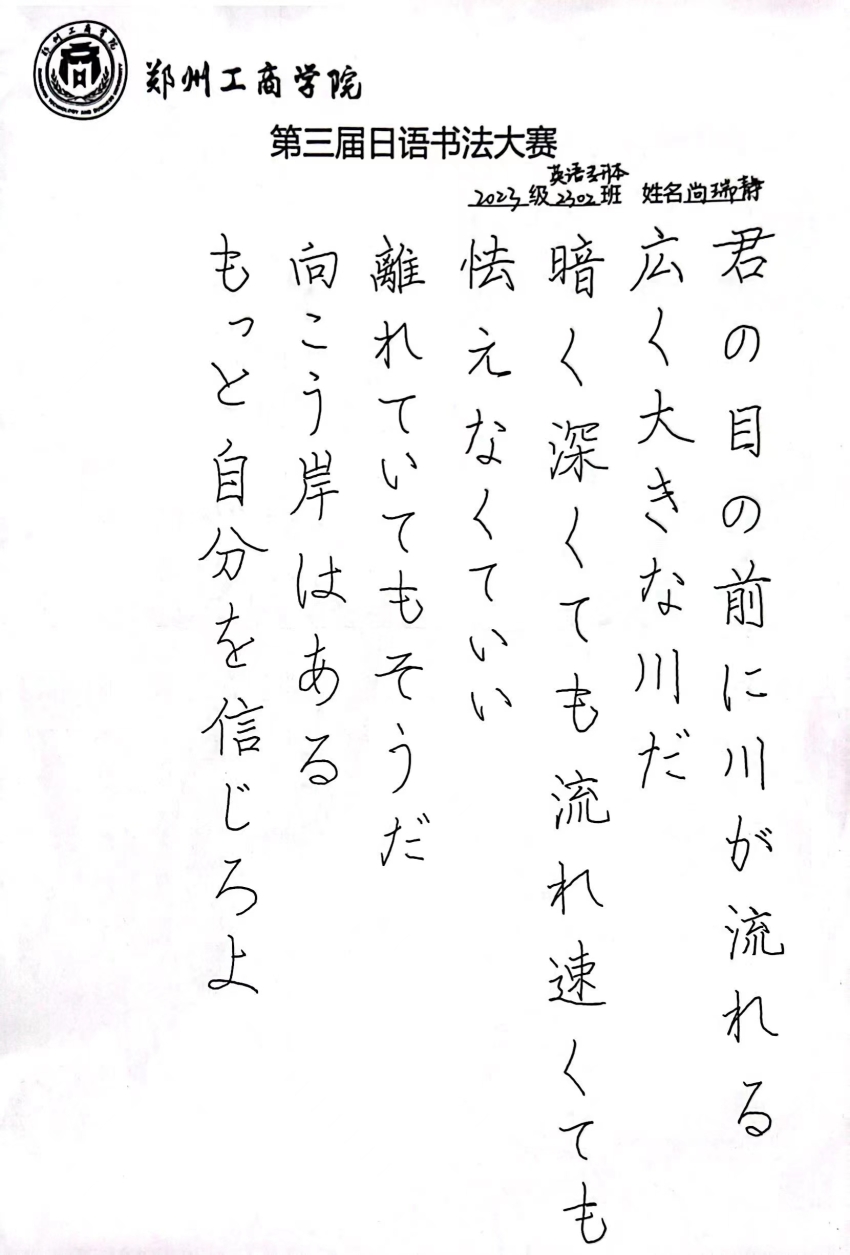 郑州工商学院
郑州工商学院
ZHENGZHOU TECHNOLOGY AND BUSINESS UNIVERSITY
第三届日语书法大赛
英语专升本
2023级2302班 姓名尚瑞静
君の目の前に川が流れる
広く大きな川だ
暗く深くても流れ速くても
怯えなくていい
離れていてもそうだ
向こう岸はある
もっと自分を信じろよ